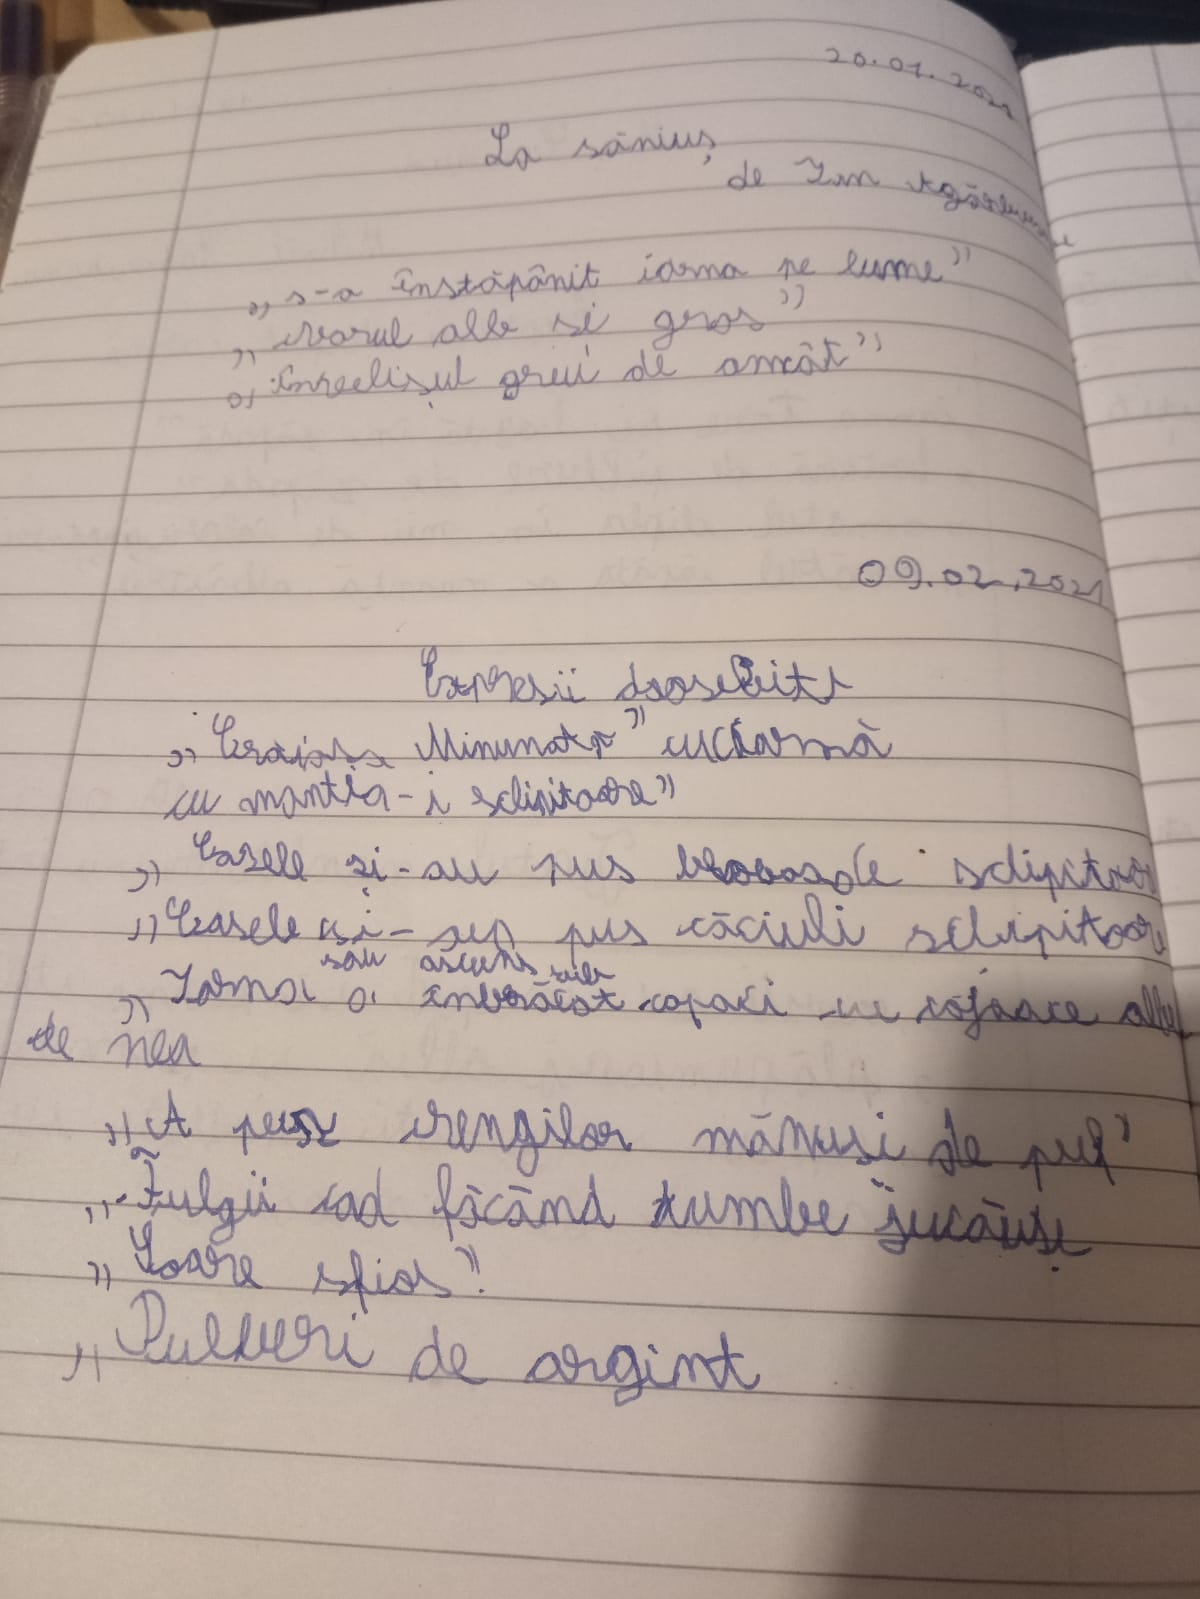 20.01.2021
La săniuș
de Ion Agârbiceanu
„s-a înstăpânit iarna pe lume”
alb si gros”
greu de omăt”
09.02.2021
Expresii deosebite
„Crăiasa Minunată”
cu mantia-i sclipitoare”
„Casele și-au pus sclipitoare
„Casele și- pus căciuli sclipitoare
sau ascuns sub
„Iarna a îmbrăcat copaci cu cojoace albe
de nea
„A pus crengilor mănusi de puf”
„Fulgii cad făcând tumbe jucăușe
„Soare sfios”
„Pulberi de argint